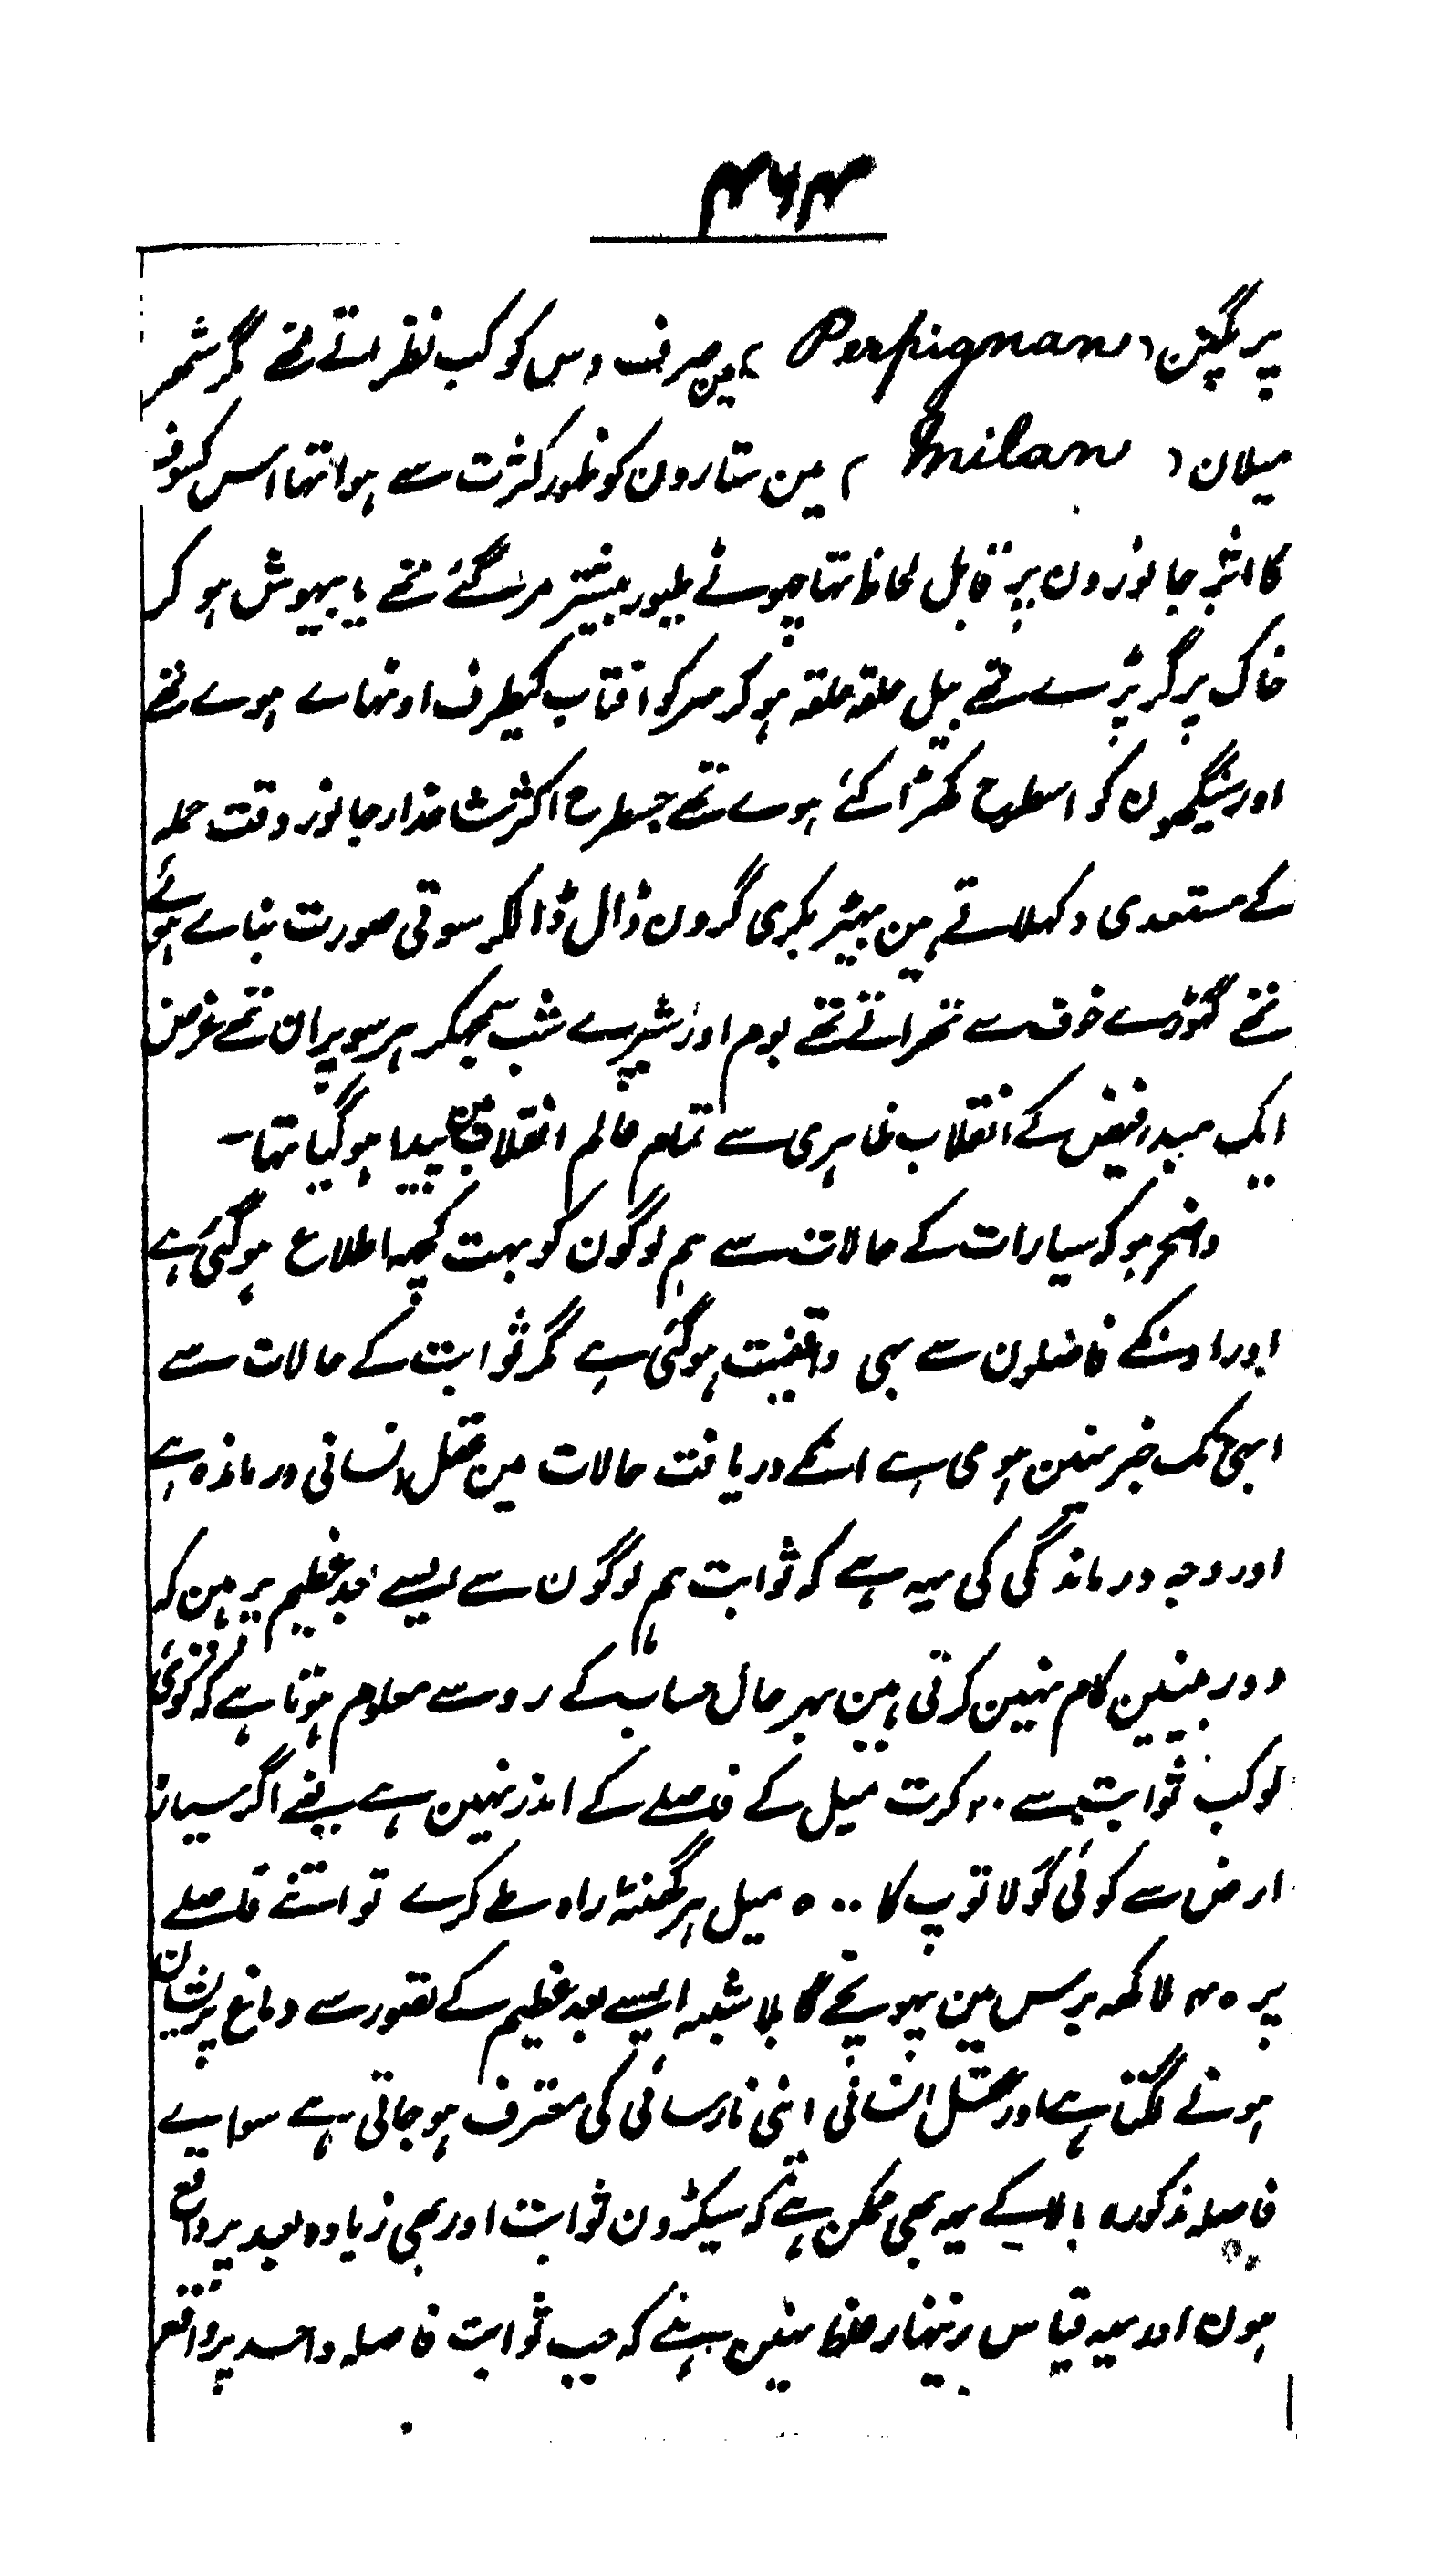 ۴۶۴
پرپگنن ( Perpignan ) مین صرف دس کوکب نظر اتے تھے مگر شہر
میلان ( Milan ) مین ستارون کو ظہور کثرت سے ہوا تھا اس کسوف
کا اثر جانورون پر قابل لحاظ تھا چھوٹے طیور بیشتر مر گئے تھے یا بیہوش ہو کر
خاک پر گر پڑے تھے بیل حلقہ حلقہ ہو کر سر کو افتاب کیطرف اوٹھاے ہوے تھے
اور سینگھون کو اسطرح کھڑا کئے ہوے تھے جسطرح اکثر شاخدار جانور وقت حملہ
کے مستعدی دکھلاتے ہین بھیڑ بکری گردن ڈال ڈالکر سوتی صورت بناے ہوئے
تھے گھوڑے خوف سے تھراتے تھے بوم اور شپرے شب سمجھکر ہر سو پران تھے غرض
ایک مبدا فیض کے انقلاب ظاہری سے تمام عالم مین انقلاب پیدا ہو گیا تھا۔
واضح ہو کہ سیارات کے حالات سے ہم لوگون کو بہت کچھ اطلاع ہو گئی ہے
اور اونکے فاصلون سے بھی واقفیت ہو گئی ہے مگر ثوابت کے حالات سے
ابھی تک خبر نہین ہوی ہے انکے دریافت حالات مین عقل انسانی درماندہ ہے
اور وجہ درماندگی کی یہہ ہے کہ ثوابت ہم لوگون سے ایسے بعد عظیم پر ہین کہ
دوربینین کام نہین کرتی ہین بہر حال حساب کے رو سے معلوم ہوتا ہے کہ کوئی
کوکب ثوابت سے ۲۰ کرت میل کے فاصلے کے اندر نہین ہے یعنے اگر سیارہ
ارض سے کوئی گولا توپ کا ۵۰۰ میل ہر گھنٹہ راہ طے کرے تو اتنے فاصلے
پر ۴۵ لاکھہ برس مین پہونچے گا بلا شبہ ایسے بعد عظیم کے تصور سے دماغ پریشان
ہونے لگتا ہے اور عقل انسانی اپنی نارسائی کی معترف ہو جاتی ہے سواے
فاصلہ مذکورہ بالا کے یہہ بھی ممکن ہے کہ سیکڑون ثوابت اور بھی زیادہ بعد پر واقع
ہون اور یہہ قیاس زینہار غلط نہین ہے کہ جب ثوابت فاصلہ واحد پر واقع